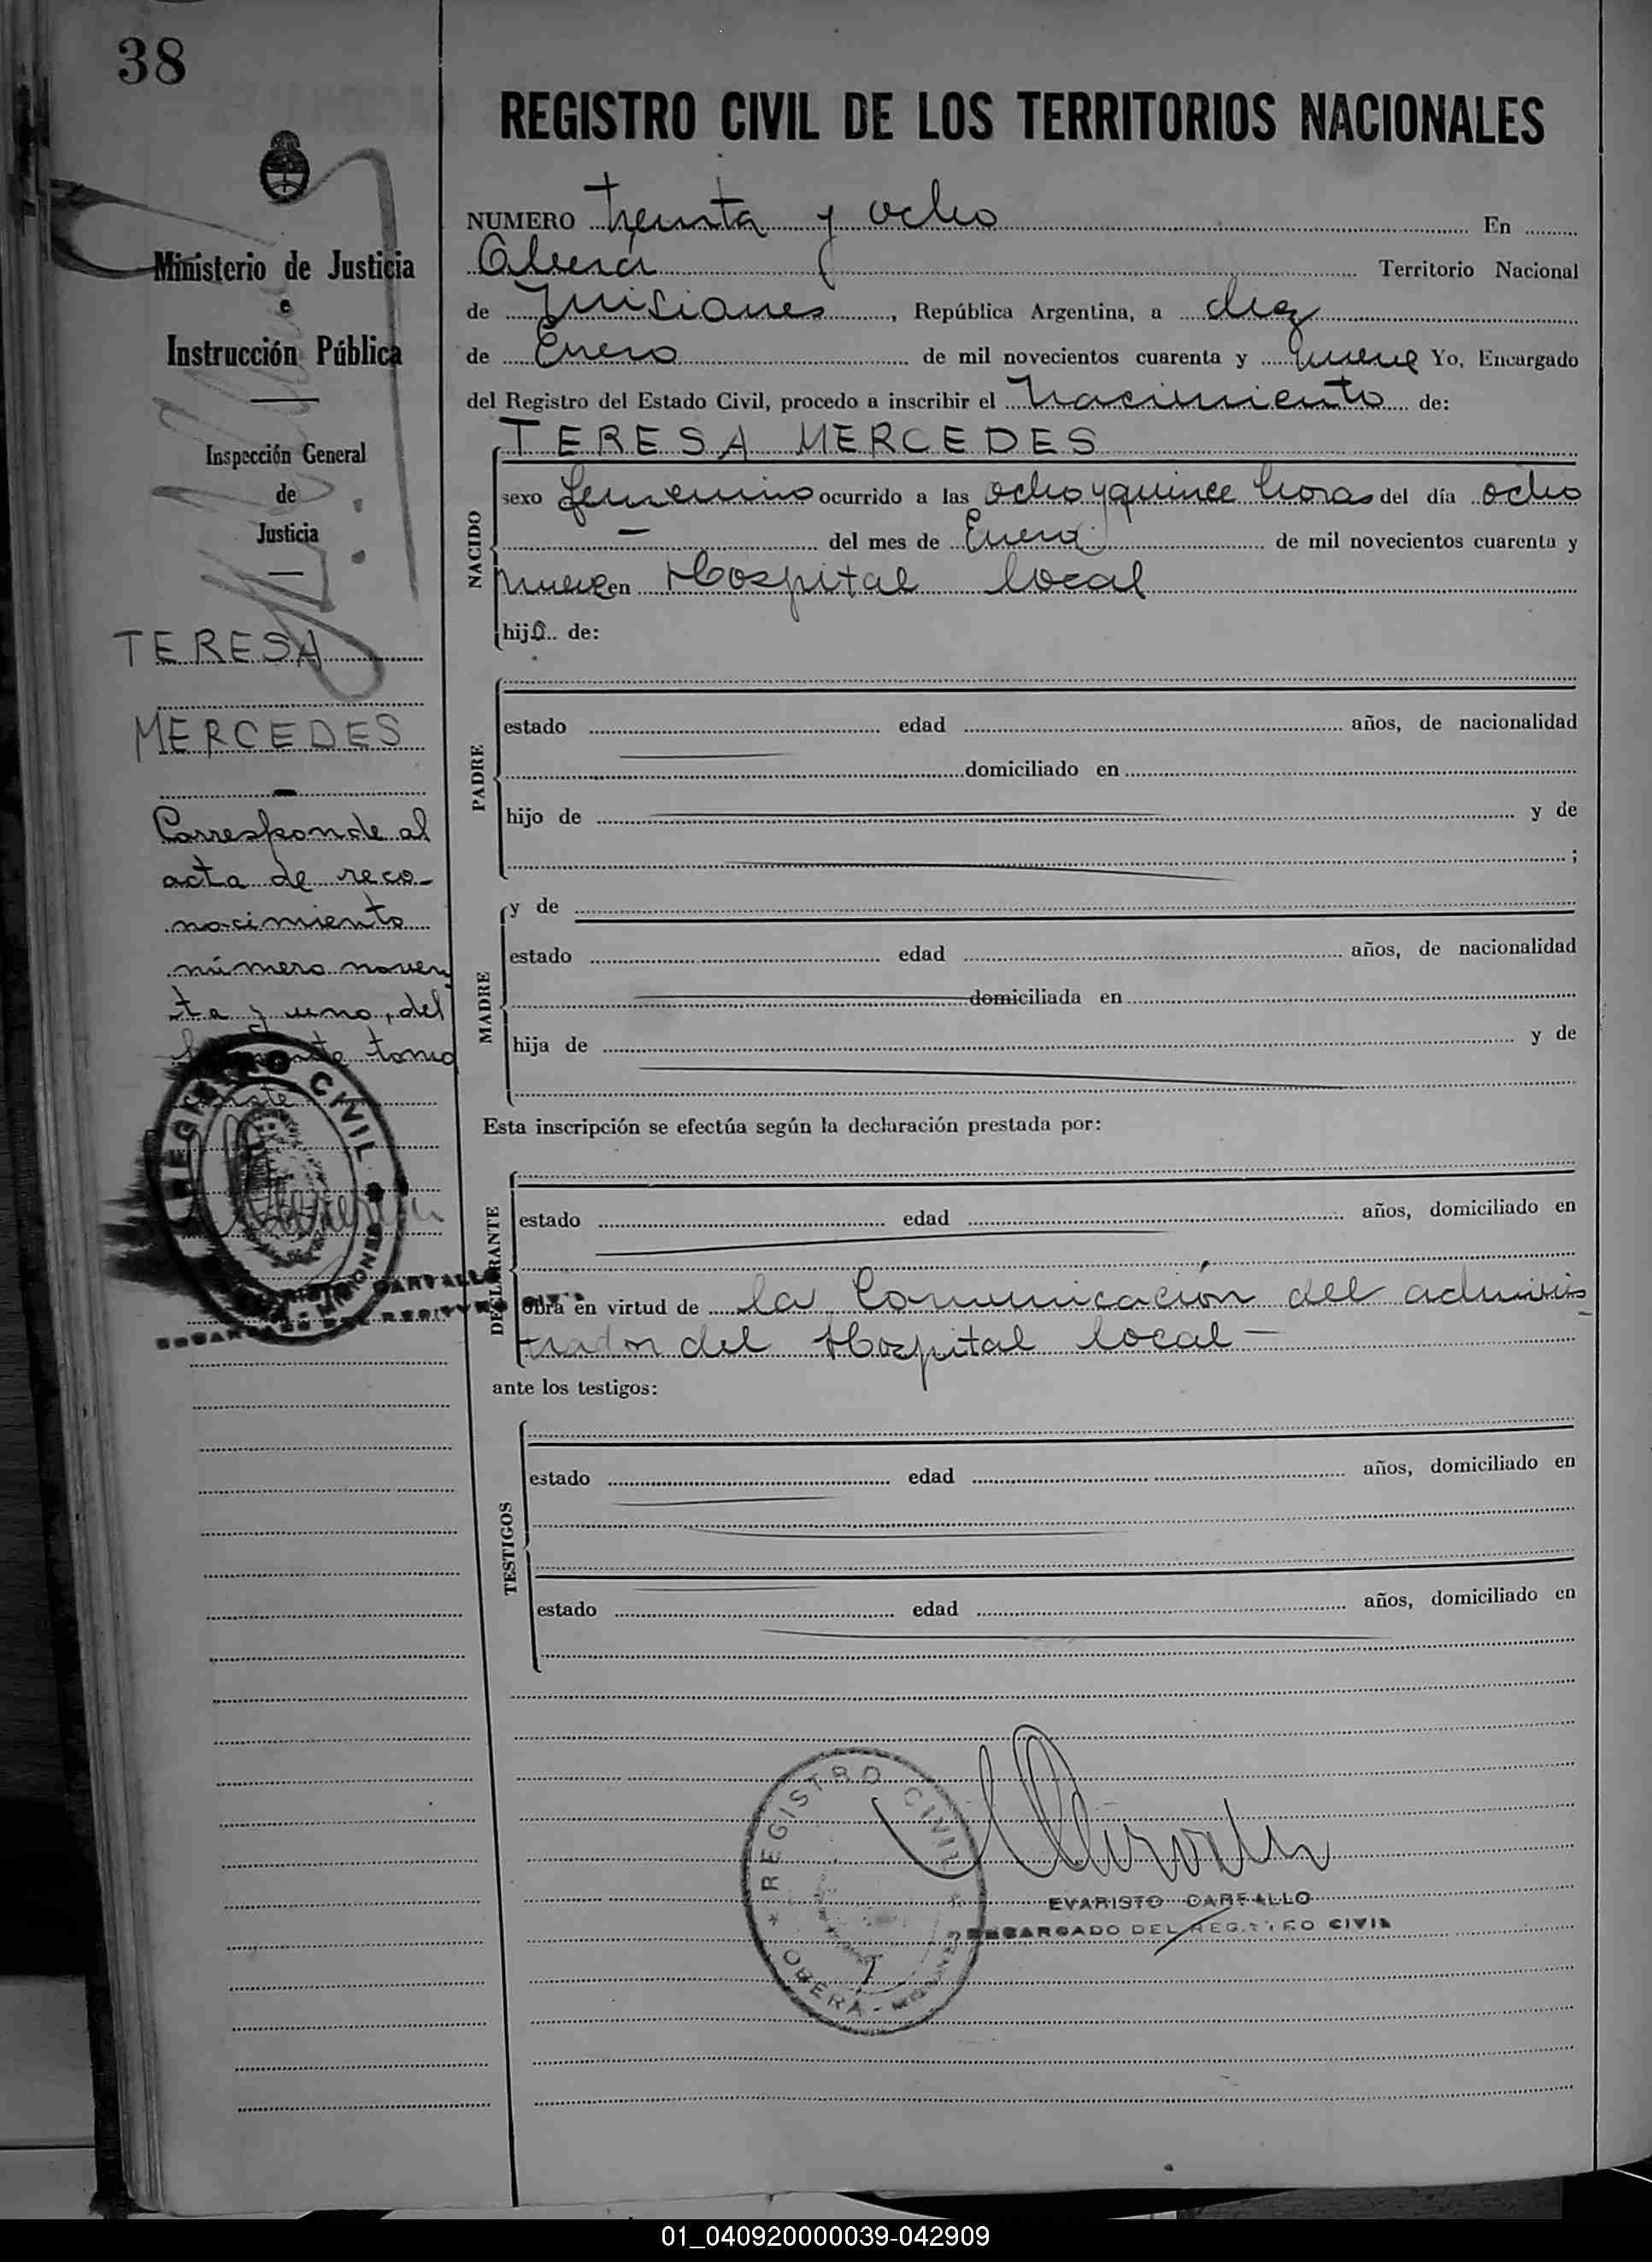 38
REGISTRO CIVIL DE LOS TERRITORIOS NACIONALES
Ministerio de Justicia
e
Instrucción Pública
Inspección General
de
Justicia
TERESA
MERCEDES
Corresponde al
acta de reco-
nocimiento
número noven
ta y uno, del
tomo
REGISTRO CIVIL
NUMERO treinta y ocho En
Oberá Territorio Nacional
de Misiones, República Argentina, a diez
de Enero de mil novecientos cuarenta y nueve Yo, Encargado
del Registro del Estado Civil, procedo a inscribir el nacimiento de:
TERESA MERCEDES
NACIDO
sexo femenino ocurrido a las ocho y quince horas del día ocho
— del mes de Enero de mil novecientos cuarenta y
nueve en Hospital local
hija de:
PADRE
estado edad años, de nacionalidad
domiciliado en
hijo de y de
;
MADRE
y de
estado edad años, de nacionalidad
domiciliada en
hija de y de
Esta inscripción se efectúa según la declaración prestada por:
DECLARANTE
estado edad años, domiciliado en
obra en virtud de la Comunicación del adminis
trador del Hospital local —
ante los testigos:
TESTIGOS
estado edad años, domiciliado en
estado edad años, domiciliado en
REGISTRO CIVIL
OBERÁ - MISIONES
EVARISTO CARFALLO
ENCARGADO DEL REGISTRO CIVIL
01_040920000039-042909